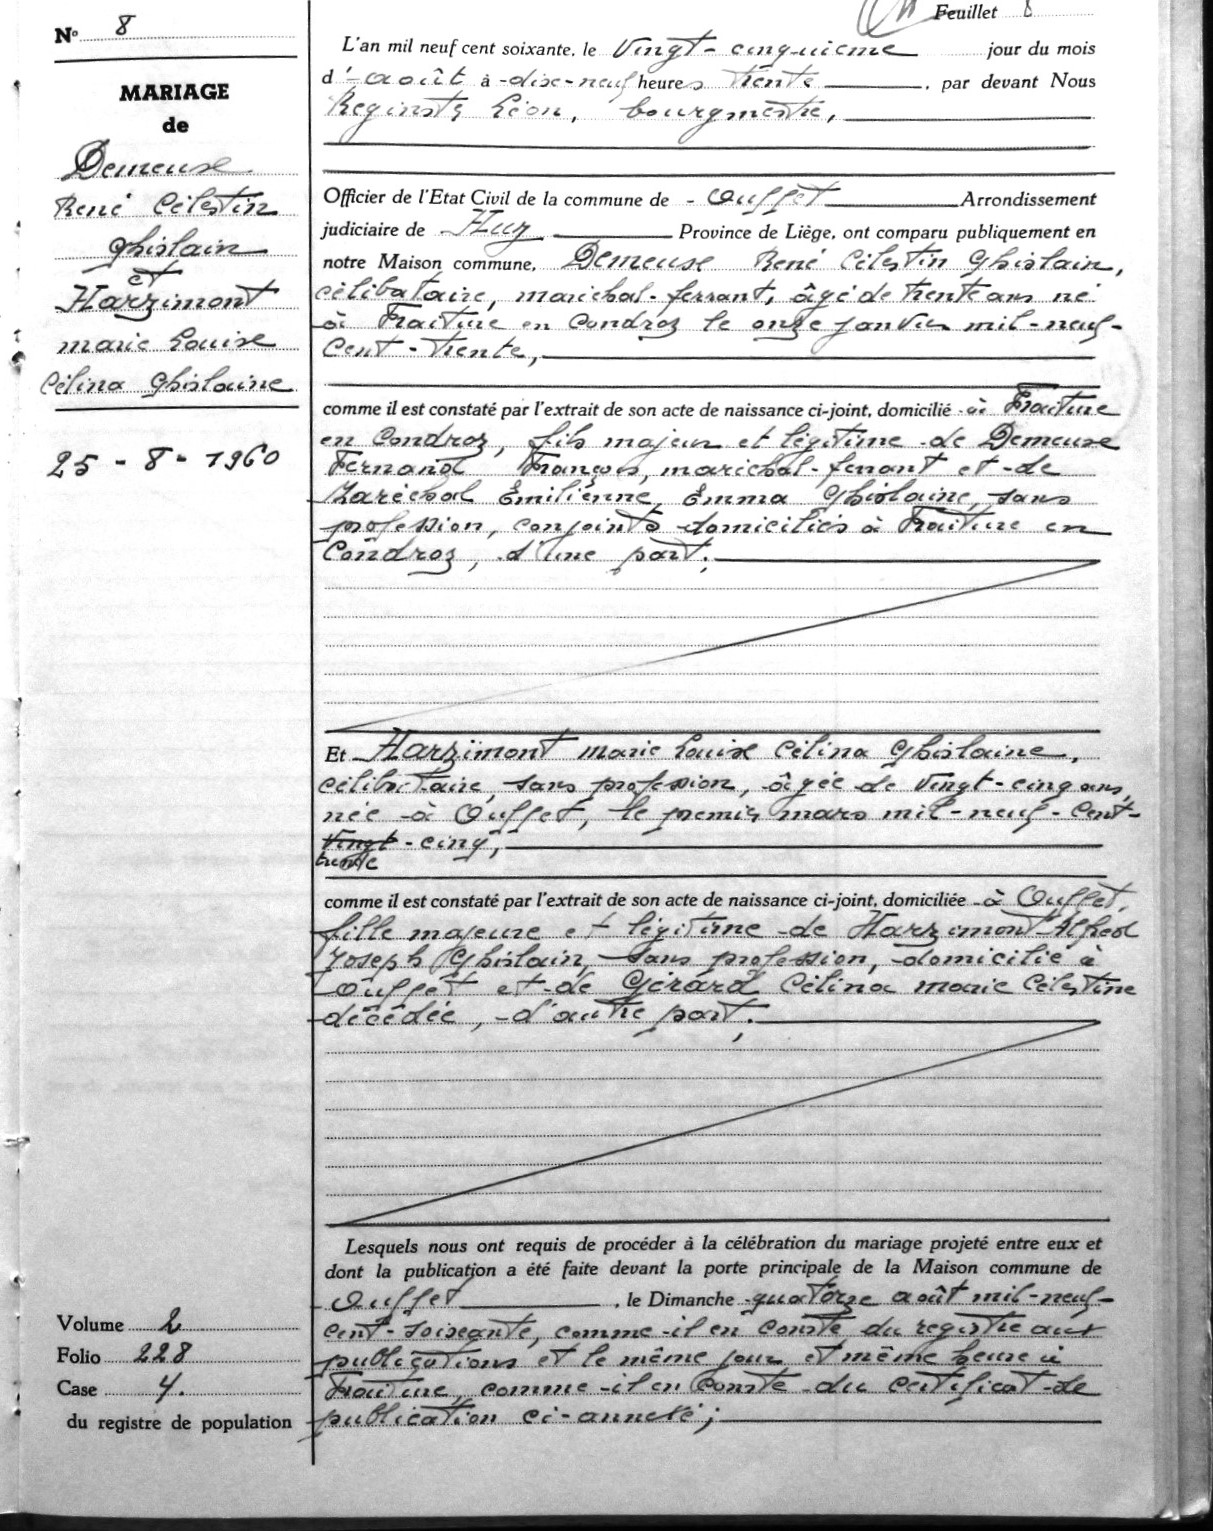 N° 8
MARIAGE
de
Demeuse
René Célestin
Ghislain
et
Harzimont
marie Louise
Célina Ghislaine
25 - 8 - 1960
Volume 2
Folio 228
Case 4.
du registre de population
Feuillet 8
L'an mil neuf cent soixante, le vingt-cinquième jour du mois
d'août à dix-neuf heures trente, par devant Nous
Léon, bourgmestre,
Officier de l'Etat Civil de la commune de - Ouffet Arrondissement
judiciaire de Huy Province de Liège, ont comparu publiquement en
notre Maison commune, Demeuse René Célestin Ghislain,
célibataire, maréchal-ferrant, âgé de trente ans né
à Fraiture en Condroz le onze janvier mil-neuf-
cent-trente,
comme il est constaté par l'extrait de son acte de naissance ci-joint, domicilié à Fraiture
en Condroz, fils majeur et légitime de Demeuse
Fernand François, maréchal-ferrant et de
Maréchal Émilienne, Emma Ghislaine, sans
profession, conjoints domiciliés à Fraiture en
Condroz, d'une part;
Et Harzimont marie Louise Célina Ghislaine,
célibataire, sans profession, âgée de vingt-cinq ans,
née à Ouffet, le premier mars mil-neuf-cent-
vingt-cinq,
trente
comme il est constaté par l'extrait de son acte de naissance ci-joint, domiciliée à Ouffet,
fille majeure et légitime de Harzimont Alfred
Joseph Ghislain, sans profession, domicilié à
Ouffet et de Gérard Célina marie Célestine
décédée, d'autre part;
Lesquels nous ont requis de procéder à la célébration du mariage projeté entre eux et
dont la publication a été faite devant la porte principale de la Maison commune de
Ouffet, le Dimanche quatorze août mil-neuf-
cent-soixante, comme il en conste du registre aux
publications et le même jour et même heure à
Fraiture, comme il en conste du certificat de
publication ci-annexé;